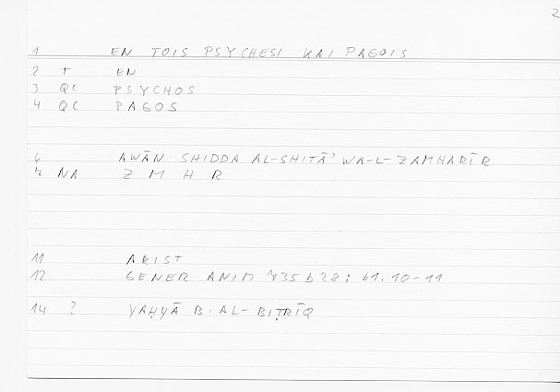 2
1 EN TOIS PSYCHESI KAI PAGOIS
2 T EN
3 QC PSYCHOS
4 QC PAGOS
6 AWĀN SHIDDA AL-SHITĀ' WA-L-ZAMHARĪR
7 NA Z M H R
11 ARIST
12 GENER ANIM 735 b 28; 61.10-11
14 ? YAḤYĀ B. AL-BIṬRĪQ